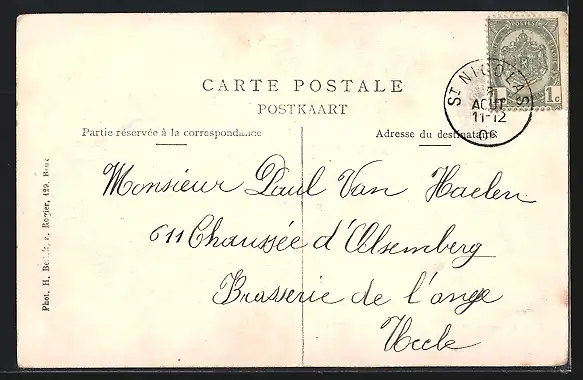 CARTE POSTALE
POSTKAART
Partie réservée à la correspondance
Adresse du destinataire
POSTES
1c 1c
ST NICOLAS
AOUT
11-12
Monsieur Paul Van Haelen
611 Chaussée d'Alsemberg
Brasserie de l'ange
Uccle
Phot. H. 129,